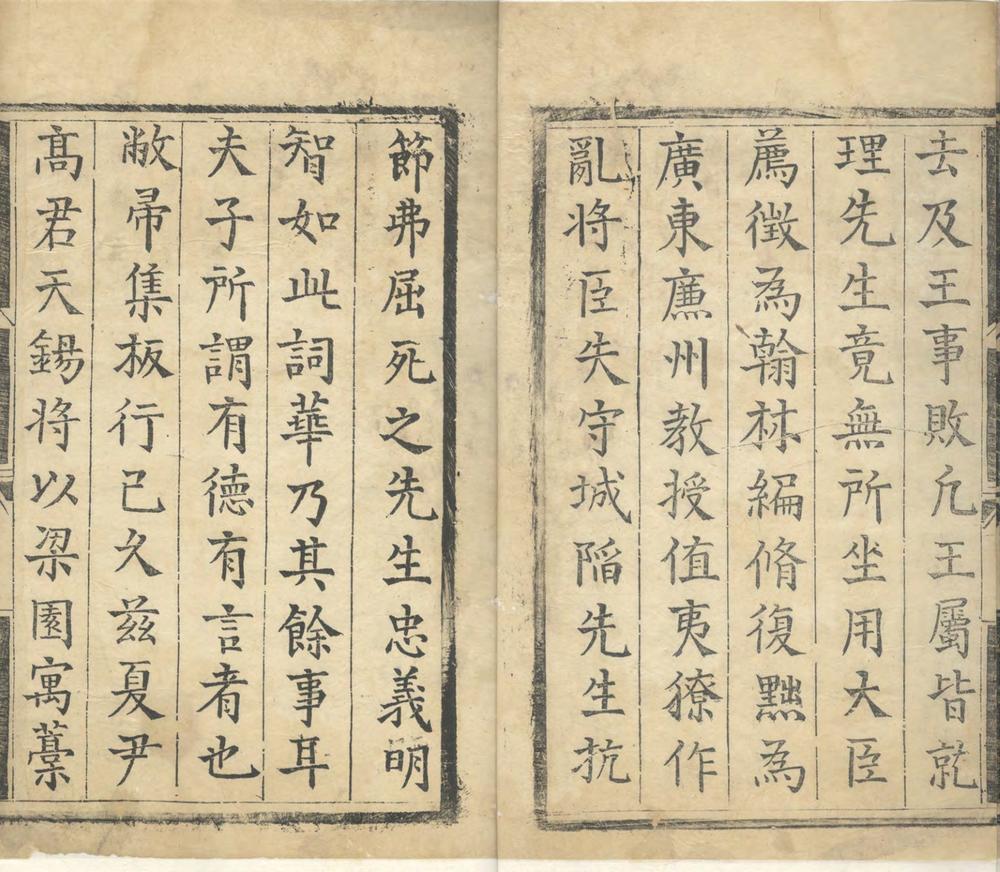 去及王事敗凢王屬皆就
理先生竟無所坐用大臣
薦徵為翰林編脩復黜為
廣東廉州教授值夷獠作
亂將臣失守城陷先生抗
節弗屈死之先生忠義明
智如此詞華乃其餘事耳
夫子所謂有德有言者也
敝帚集板行已久茲夏尹
高君天錫将以梁園寓藁